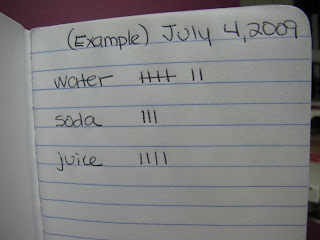 (Example) July 4, 2009
water 卌 ||
soda |||
juice ||||